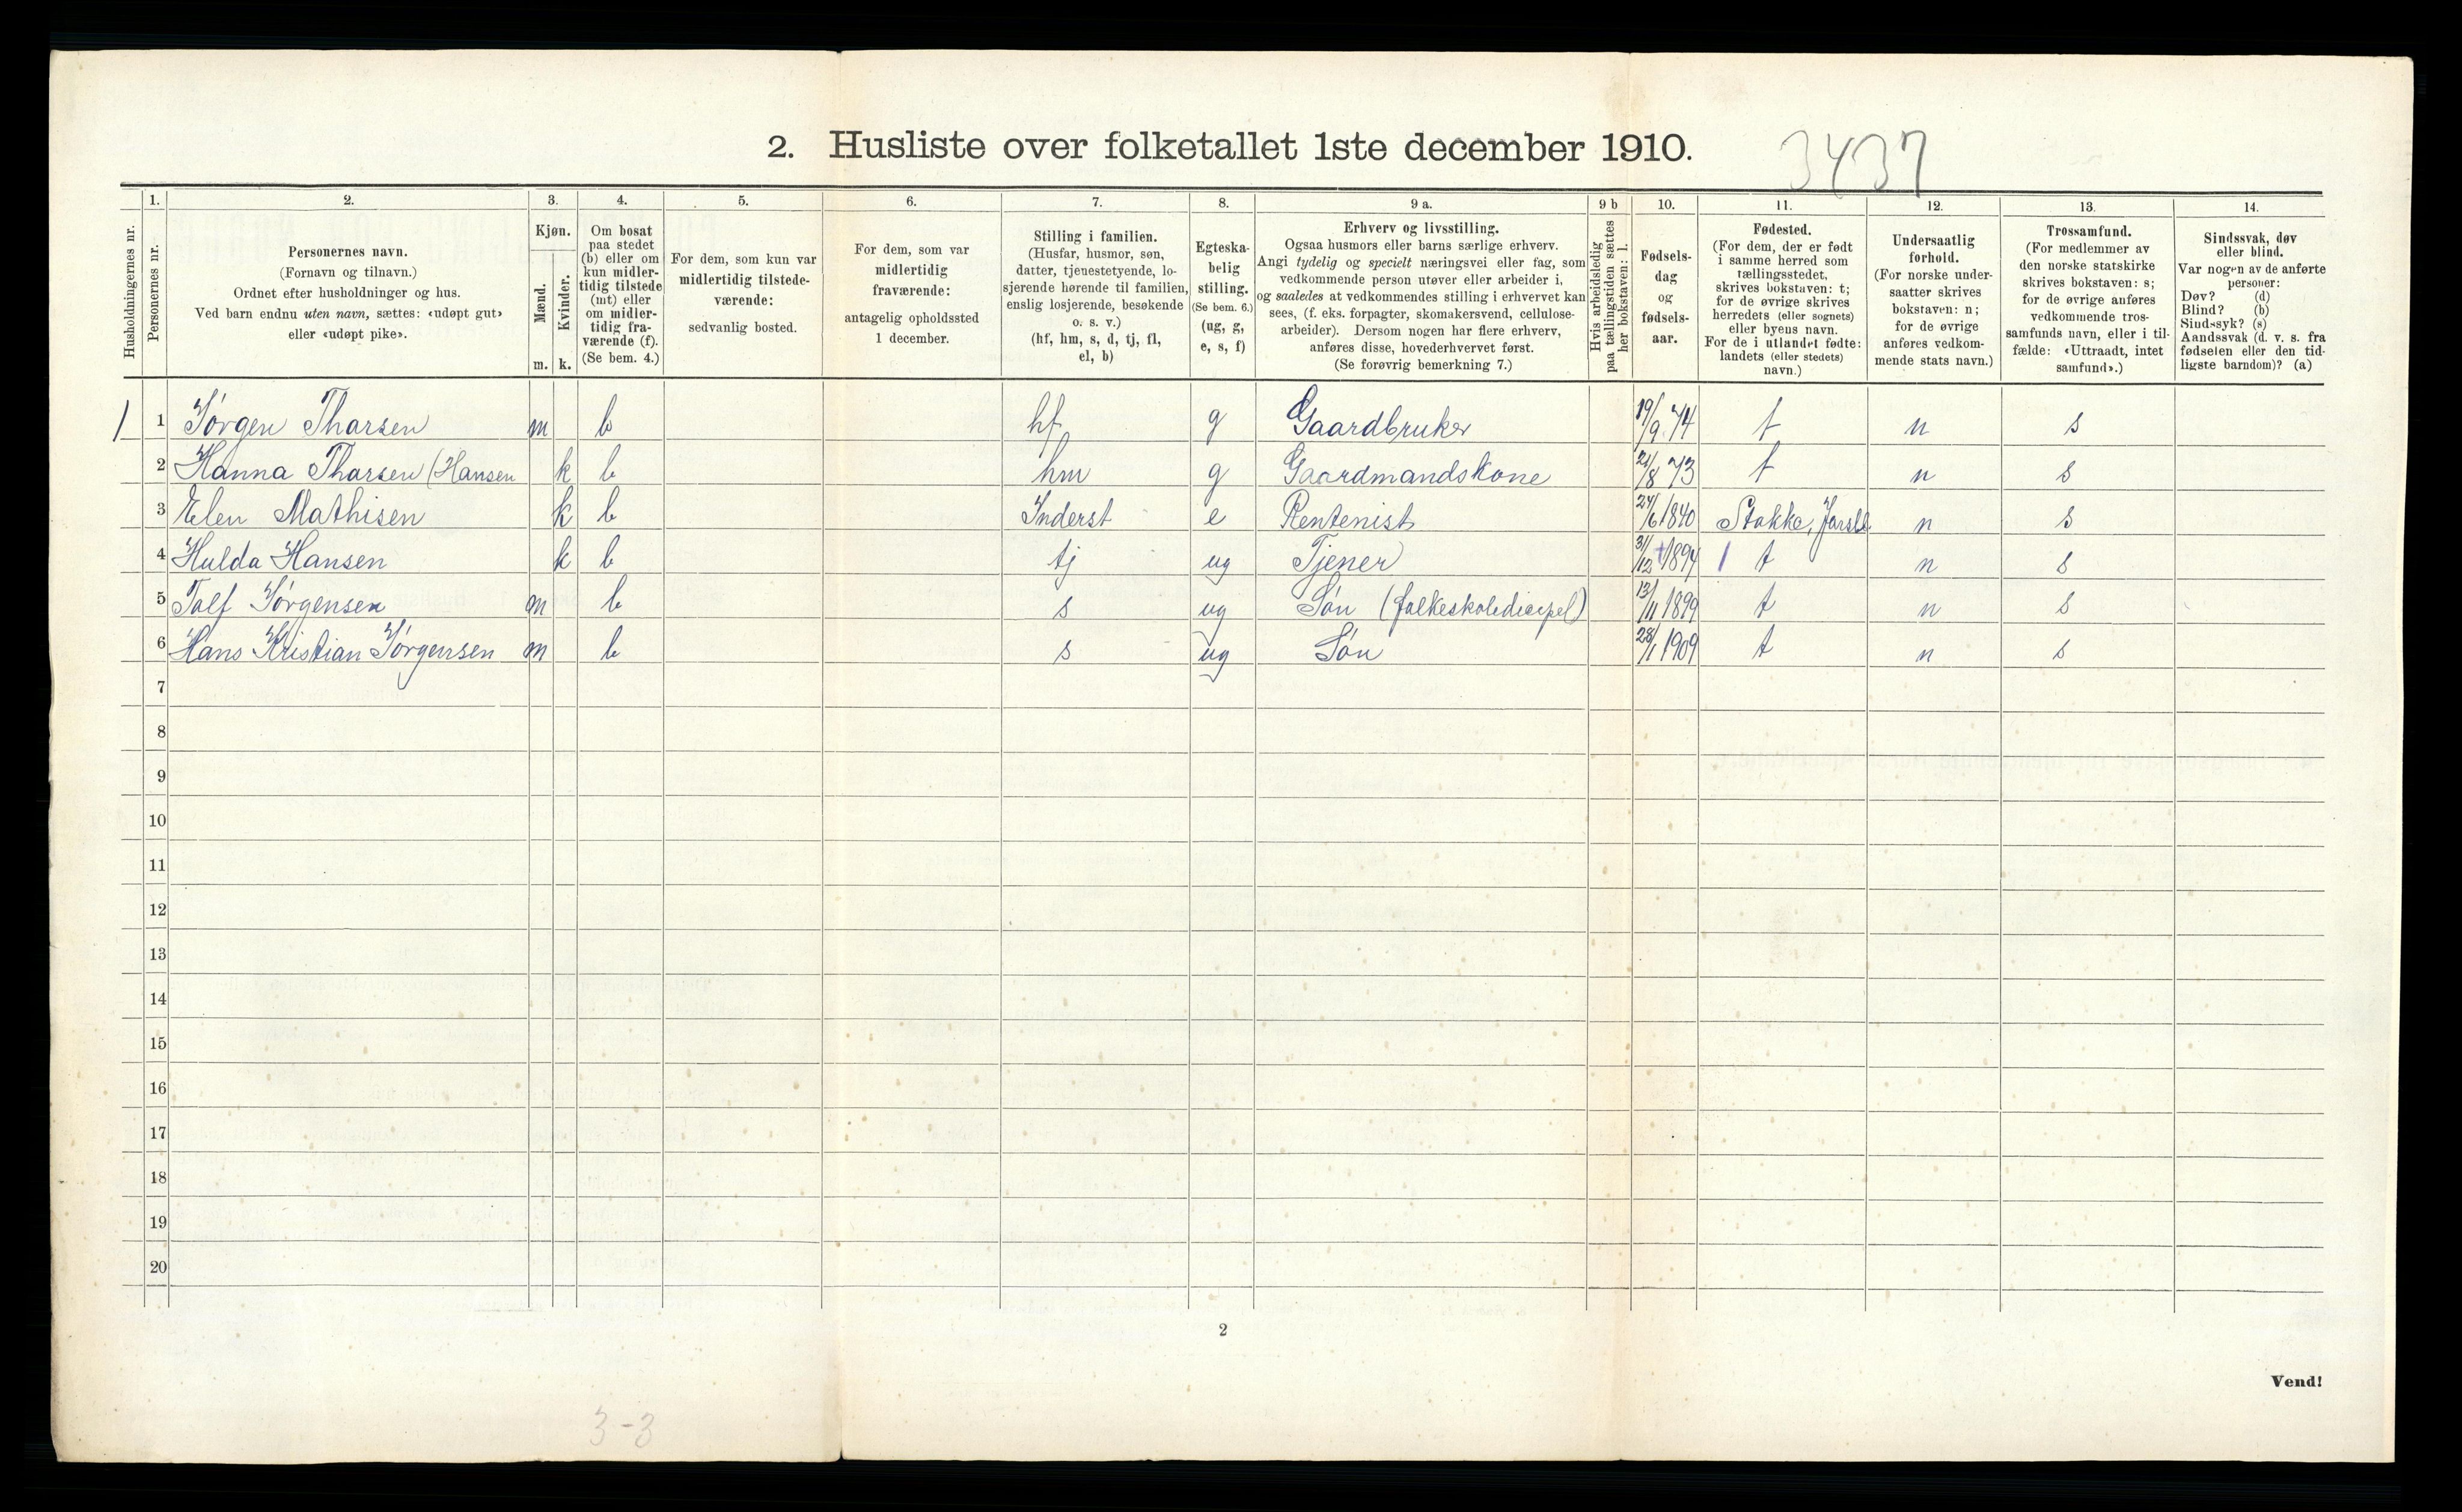 2. Husliste over folketallet 1ste december 1910.
3437
Husholdningernes nr.
1.
Personernes nr.
2.
Personernes navn.
(Fornavn og tilnavn.)
Ordnet efter husholdninger og hus.
Ved barn endnu uten navn, sættes: «udøpt gut»
eller «udøpt pike».
3.
Kjøn.
Mænd.
m.
Kvinder.
k.
4.
Om bosat
paa stedet
(b) eller om
kun midler-
tidig tilstede
(mt) eller
om midler-
tidig fra-
værende (f).
(Se bem. 4.)
5.
For dem, som kun var
midlertidig tilstede-
værende:
sedvanlig bosted.
6.
For dem, som var
midlertidig
fraværende:
antagelig opholdssted
1 december.
7.
Stilling i familien.
(Husfar, husmor, søn,
datter, tjenestetyende, lo-
sjerende hørende til familien,
enslig losjerende, besøkende
o. s. v.)
(hf, hm, s, d, tj, fl,
el, b)
8.
Egteska-
belig
stilling.
(Se bem. 6.)
(ug, g,
e, s, f)
9 a.
Erhverv og livsstilling.
Ogsaa husmors eller barns særlige erhverv.
Angi tydelig og specielt næringsvei eller fag, som
vedkommende person utøver eller arbeider i,
og saaledes at vedkommendes stilling i erhvervet kan
sees, (f. eks. forpagter, skomakersvend, cellulose-
arbeider). Dersom nogen har flere erhverv,
anføres disse, hovederhvervet først.
(Se forøvrig bemerkning 7.)
9 b
Hvis arbeidsledig
paa tællingstiden sættes
her bokstaven: l.
10.
Fødsels-
dag
og
fødsels-
aar.
11.
Fødested.
(For dem, der er født
i samme herred som
tællingsstedet,
skrives bokstaven: t;
for de øvrige skrives
herredets (eller sognets)
eller byens navn.
For de i utlandet fødte:
landets (eller stedets)
navn.)
12.
Undersaatlig
forhold.
(For norske under-
saatter skrives
bokstaven: n;
for de øvrige
anføres vedkom-
mende stats navn.)
13.
Trossamfund.
(For medlemmer av
den norske statskirke
skrives bokstaven: s;
for de øvrige anføres
vedkommende tros-
samfunds navn, eller i til-
fælde: «Uttraadt, intet
samfund».)
14.
Sindssvak, døv
eller blind.
Var nogen av de anførte
personer:
Døv? (d)
Blind? (b)
Sindssyk? (s)
Aandssvak (d. v. s. fra
fødselen eller den tid-
ligste barndom)? (a)
1 1 Jørgen Tharsen m b hf g Gaardbruker 19/9 74 t n s
2 Hanna Tharsen (Hansen k b hm g Gaardmandskone 21/8 73 t n s
3 Elen Mathisen k b Inderst e Rentenist 24/6 1840 Stokke, Jarsb. n s
4 Hulda Hansen k b tj ug Tjener 31/12 1894 t n s
5 Tolf Jørgensen m b s ug Søn (folkeskoledisepel) 13/11 1899 t n s
6 Hans Kristian Jørgensen m b s ug Søn 28/1 1909 t n s
7
8
9
10
11
12
13
14
15
16
17
18
19
20
2
Vend!
3-3